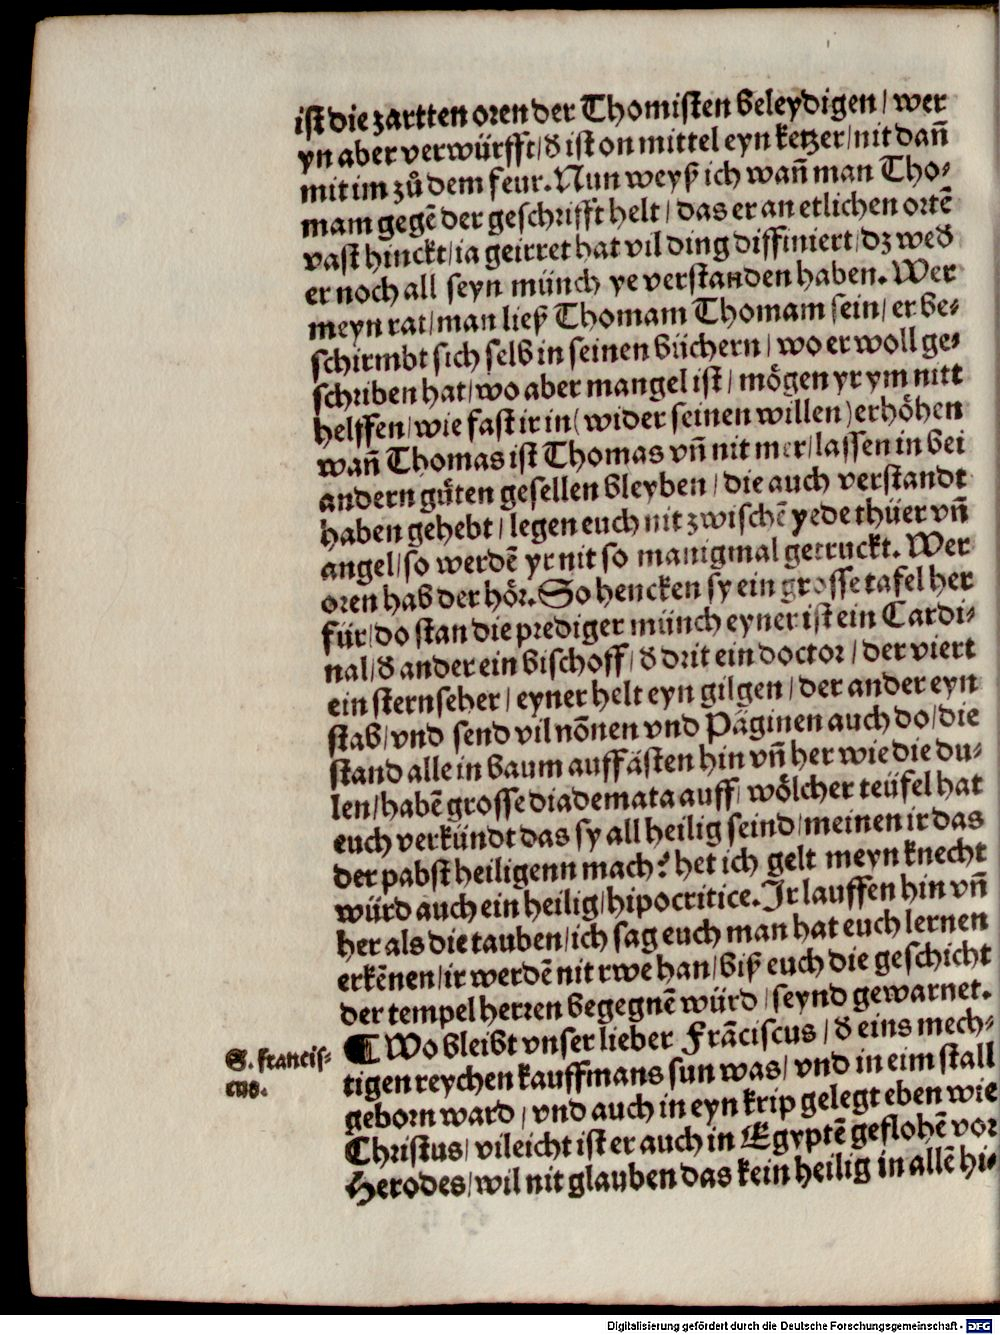 ist die zartten oren der Thomisten beleydigen / wer
yn aber verwürfft / d̕ ist on mittel eyn ketzer / nit dañ
mit im zů dem feur. Nun weyß ich wañ man Tho⸗
mam gegē der geschrifft helt / das er an etlichen ortē
vast hinckt / ia geirret hat vil ding diffiniert / dz wed̕
er noch all seyn münch ye verstanden haben. Wer
meyn rat / man ließ Thomam Thomam sein / er be⸗
schirmbt sich selb in seinen büchern / wo er woll ge⸗
schriben hat / wo aber mangel ist / mögen yr ym nitt
helffen / wie fast ir in ( wider seinen willen ) erhöhen
wañ Thomas ist Thomas vñ nit mer / lassen in bei
andern gůten gesellen bleyben / die auch verstandt
haben gehebt / legen euch nit zwischē yede thüer vñ
angel / so werdē yr nit so manigmal getruckt. Wer
oren hab der hör. So hencken sy ein grosse tafel her
für / do stan die prediger münch eyner ist ein Cardi⸗
nal / d̕ ander ein bischoff / d̕ drit ein doctor / der viert
ein sternseher / eyner helt eyn gilgen / der ander eyn
stab / vnd send vil nōnen vnd Päginen auch do / die
stand alle in baum auff ästen hin vñ her wie die du⸗
len / habē grosse diademata auff / wölcher teüfel hat
euch verkündt das sy all heilig seind / meinen ir das
der pabst heiligenn mach? het ich gelt meyn knecht
würd auch ein heilig / hipocritice. Ir lauffen hin vñ
her als die tauben / ich sag euch man hat euch lernen
erkēnen / ir werdē nit rwe han / biß euch die geschicht
der tempelherren begegnē würd / seynd gewarnet.
S. Francis⸗
cus.
¶ Wo bleibt vnser lieber Frāciscus / d̕ eins mech⸗
tigen reychen kauffmans sun was / vnd in eim stall
geborn ward / vnd auch in eyn krip gelegt eben wie
Christus / vileicht ist er auch in Egyptē geflohē vor
Herodes / wil nit glauben das kein heilig in allē hi⸗
Digitalisierung gefördert durch die Deutsche Forschungsgemeinschaft - DFG